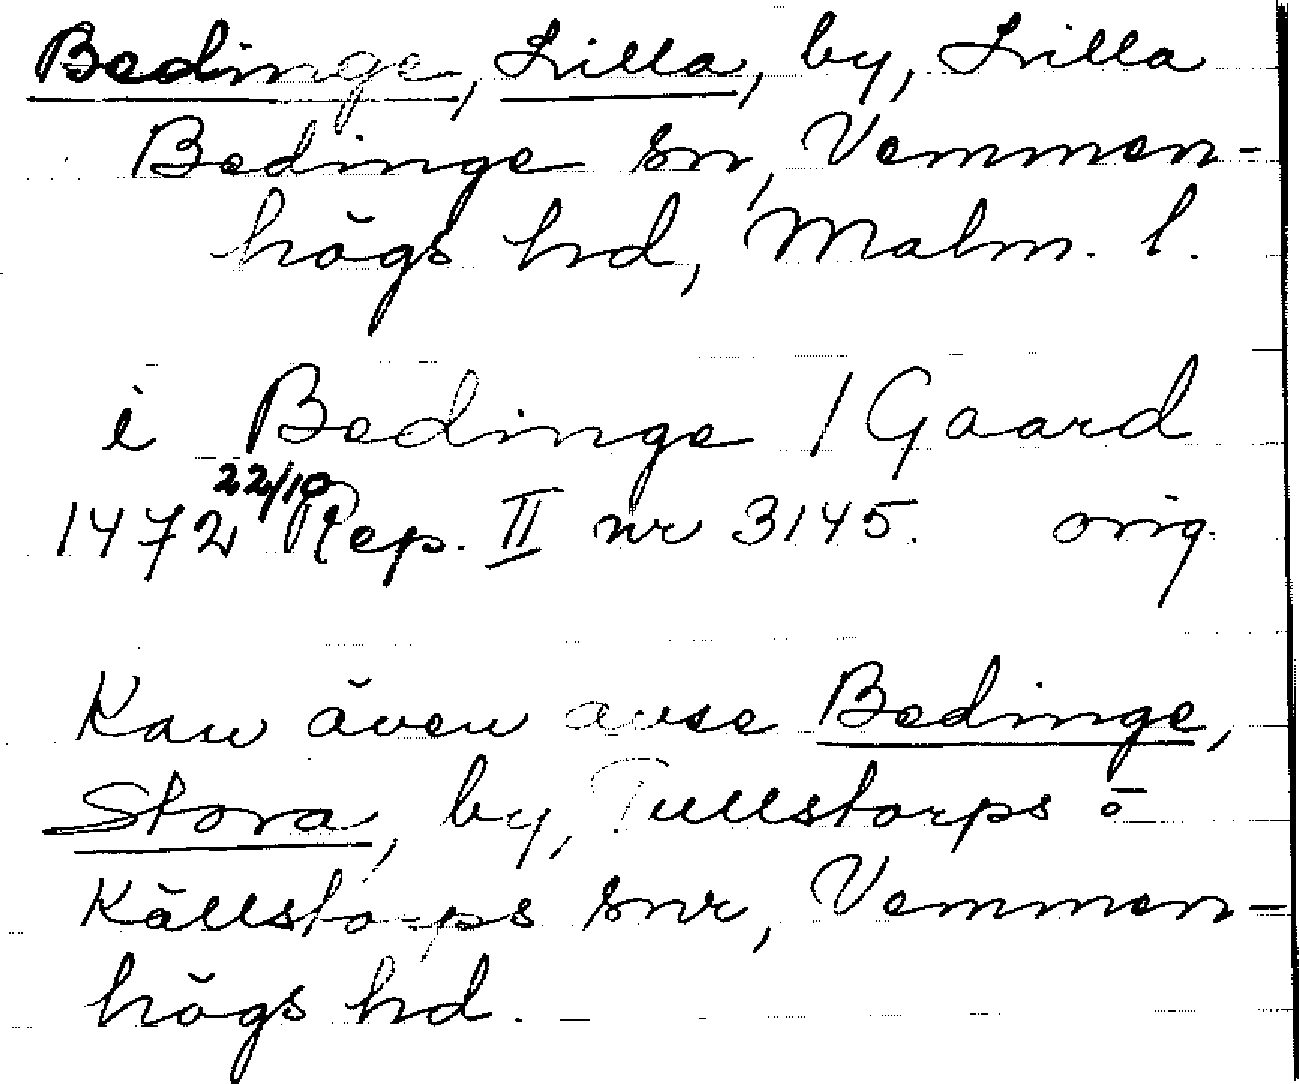 Bedinge, Lilla, by, Lilla
Bedinge sn, Vemmen-
högs hd, Malm. l.
i Bedinge / Gaard
1472 22/10 Rep. II nr 3145. orig.
Kan även avse Bedinge,
Stora, by, Tullstorps o
Källstorps snr, Vemmen-
högs hd.